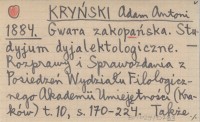 KRYŃSKI Adam Antoni
1884. Gwara zakopańska. Stu-
dyjum dyjalektologiczne. –
Rozprawy i Sprawozdania z
Posiedzeń Wydziału Filologicz-
nego Akademii Umiejętności (Kra-
ków) t. 10, s. 170–224. Także